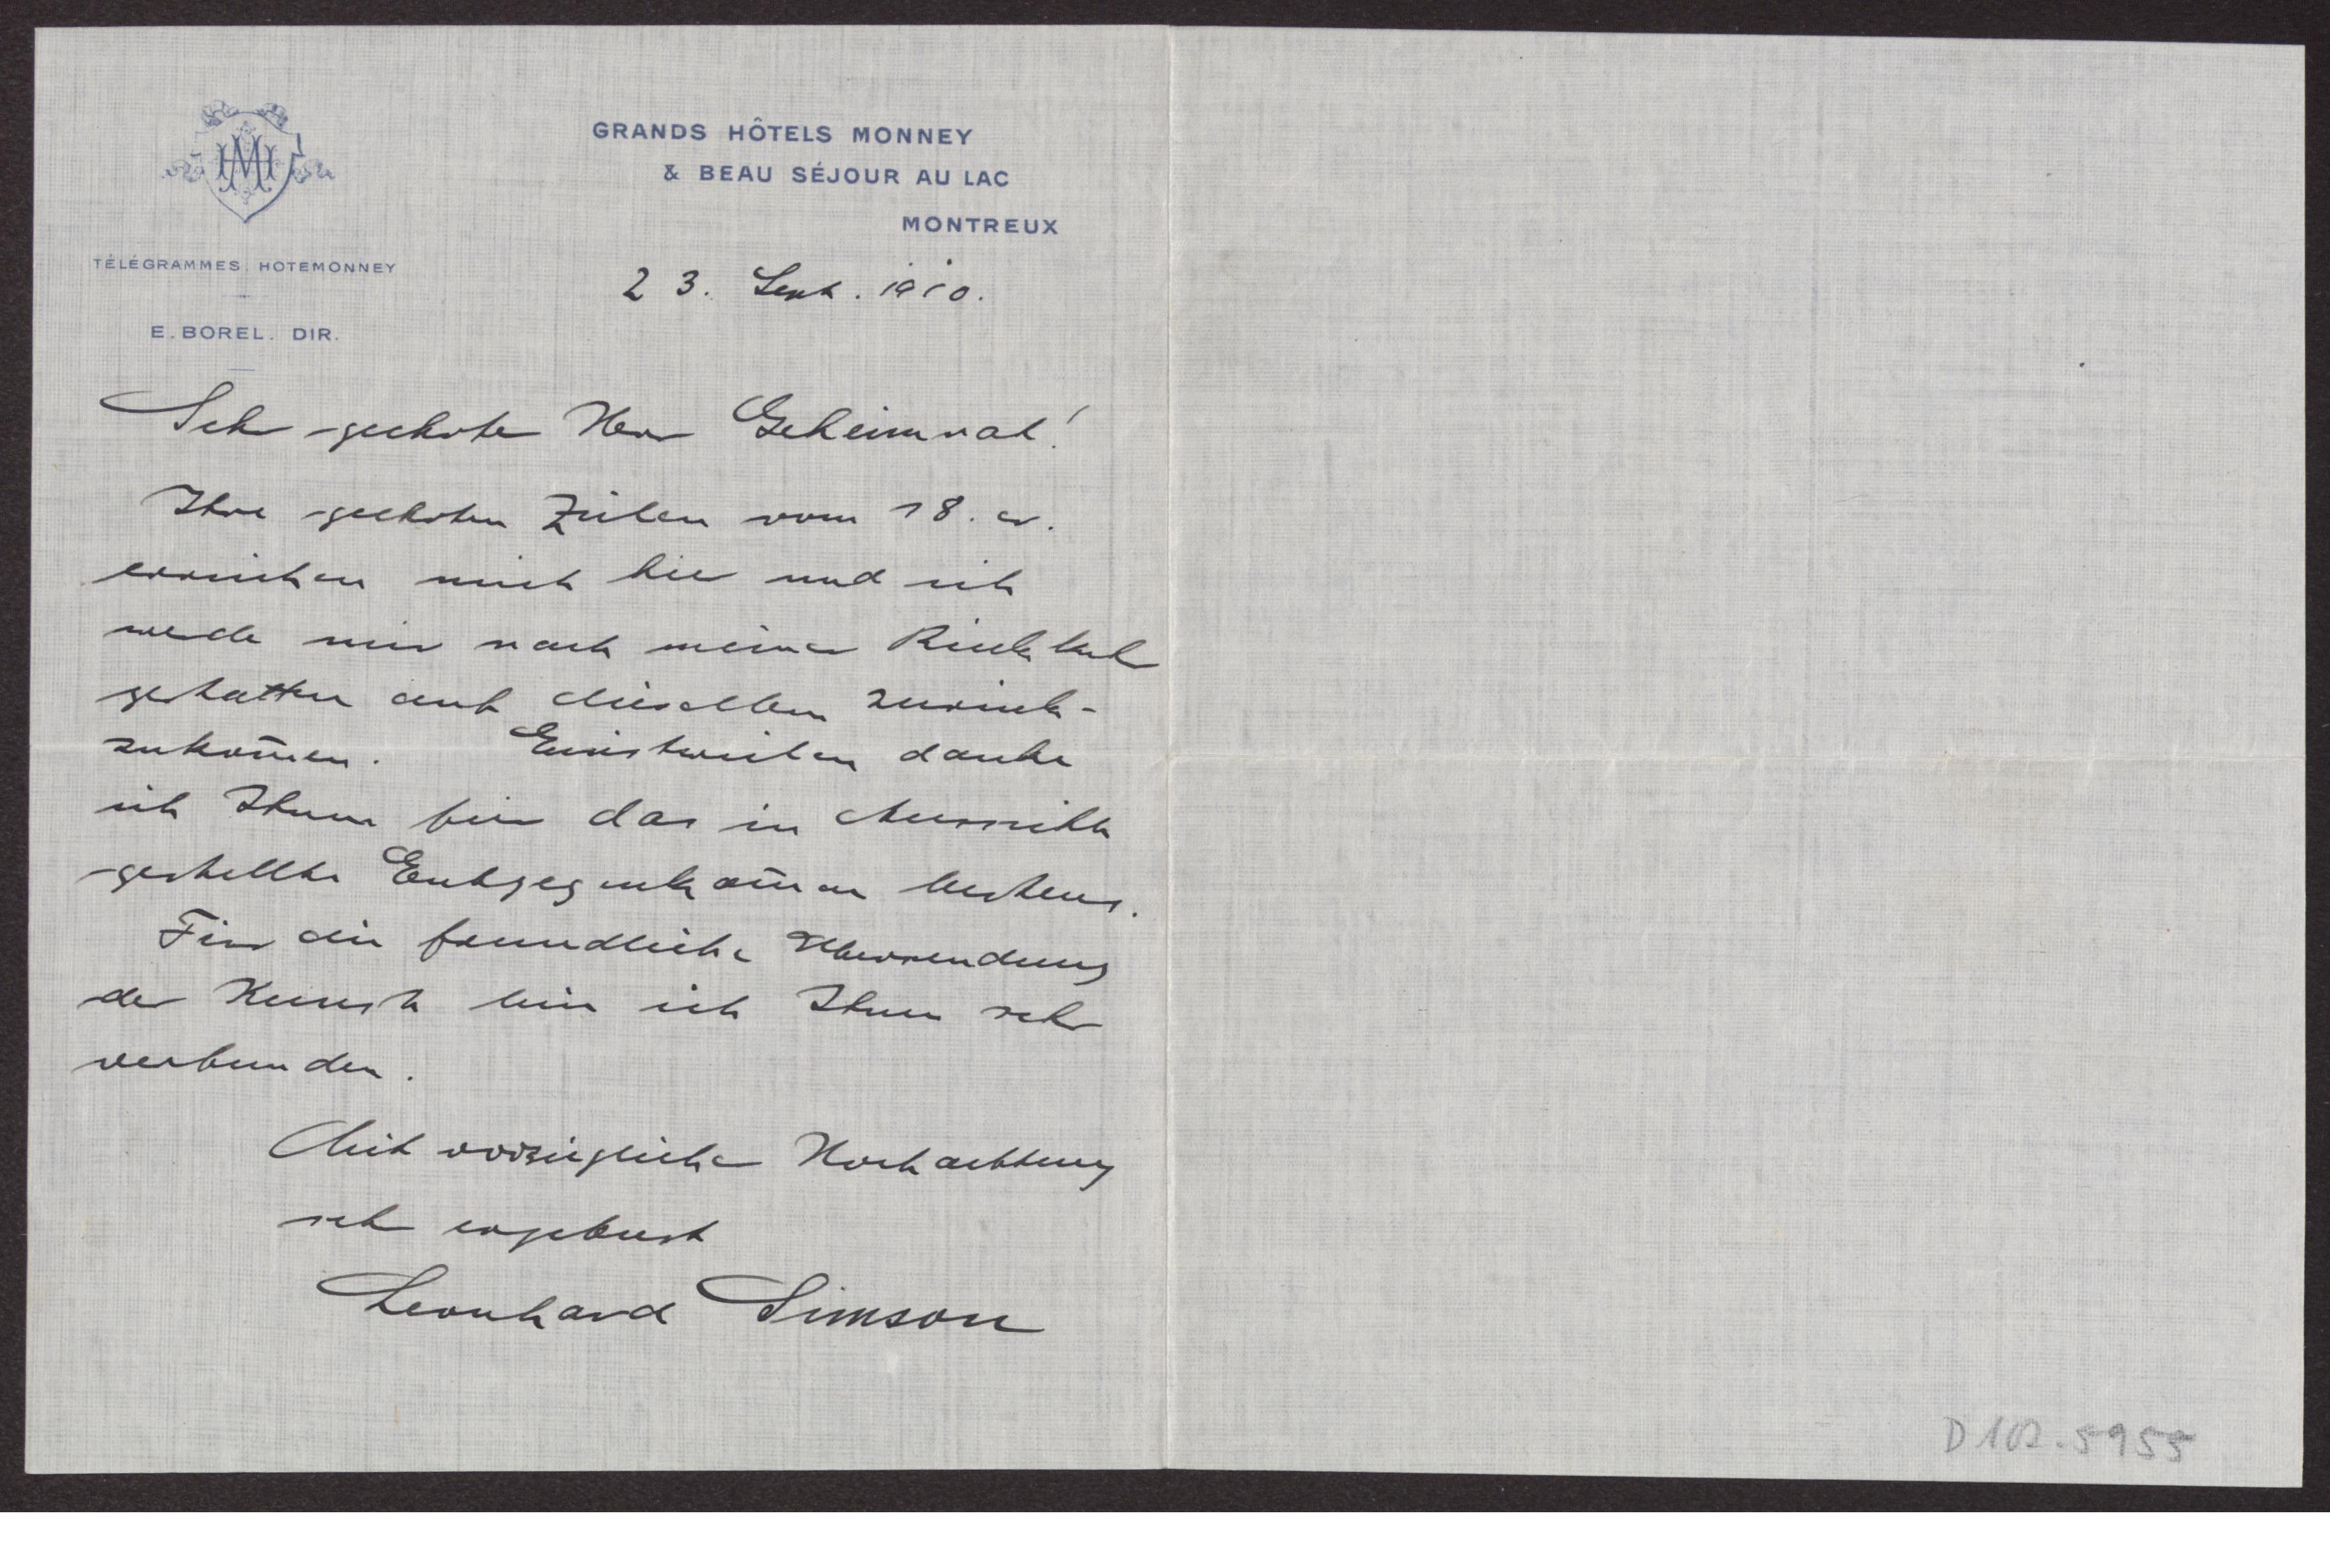 HM
GRANDS HÔTELS MONNEY
& BEAU SÉJOUR AU LAC
MONTREUX
TÉLÉGRAMMES HOTEMONNEY
E. BOREL. DIR.
23. Sept. 1910.
Sehr geehrter Herr Geheimrat!
Ihre geehrten Zeilen vom 18. cr.
erreichen mich hier und ich
werde mir nach meiner Rückkehr
gestatten auf dieselben zurück-
zukom̅en. Einstweilen danke
ich Ihnen für das in Aussicht
gestellte Entgegenkom̅en bestens.
Für die freundliche Übersendung
der Kunst bin ich Ihnen sehr
verbunden.
Mit vorzüglicher Hochachtung
sehr ergebenst
Leonhard Simson
D 102.5955